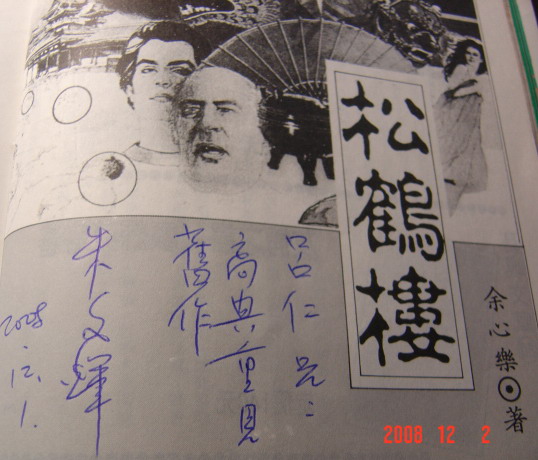 松鶴樓
余心樂⊙著
呂仁兄:
高興重見
舊作
朱文輝
2008.12.1.
2008 12 2